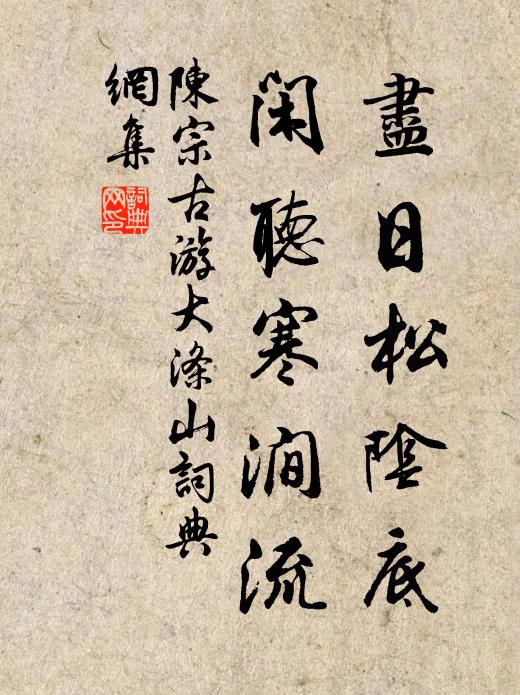 盡日松陰底
閑聽寒澗流
陳宗古游大滌山詞典
網集
詞典网印